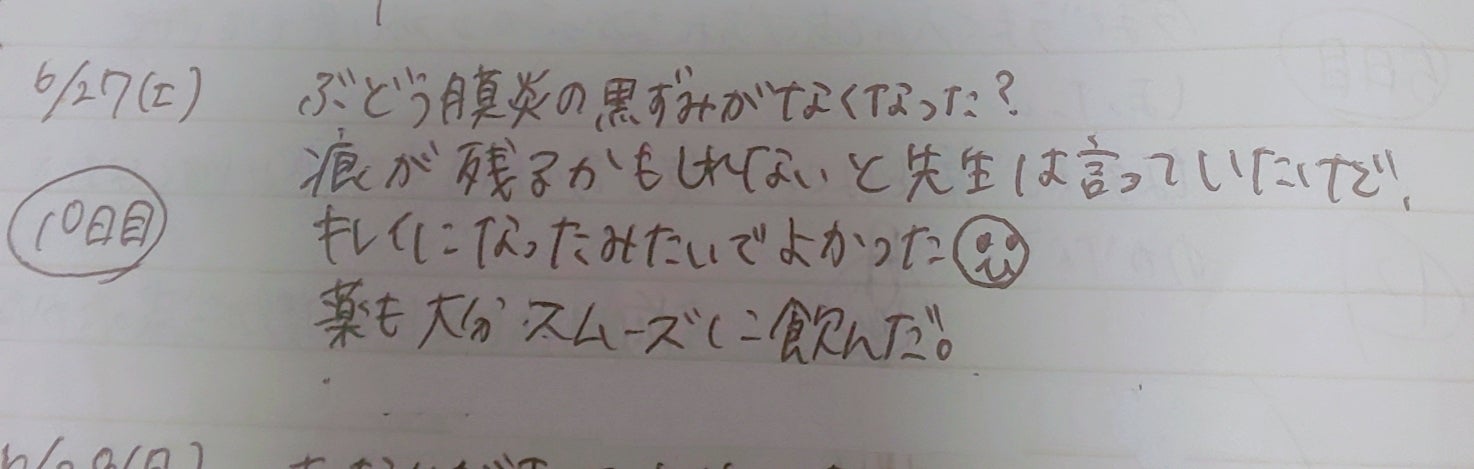 6/27(土) ぶどう膜炎の黒ずみがなくなった?
痕が残るかもしれないと先生は言っていたけど、
10日目 キレイになったみたいでよかった
薬も大分スムーズに飲んだ。